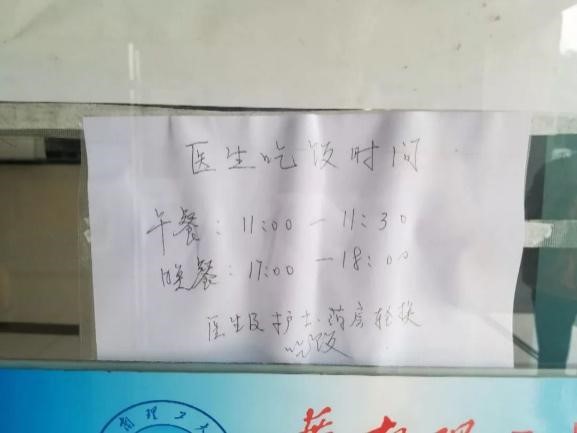 医生吃饭时间
午餐：11:00—11:30
晚餐：17:00—18:00
医生及护士、药房轮换
吃饭
南理工大
华南理工